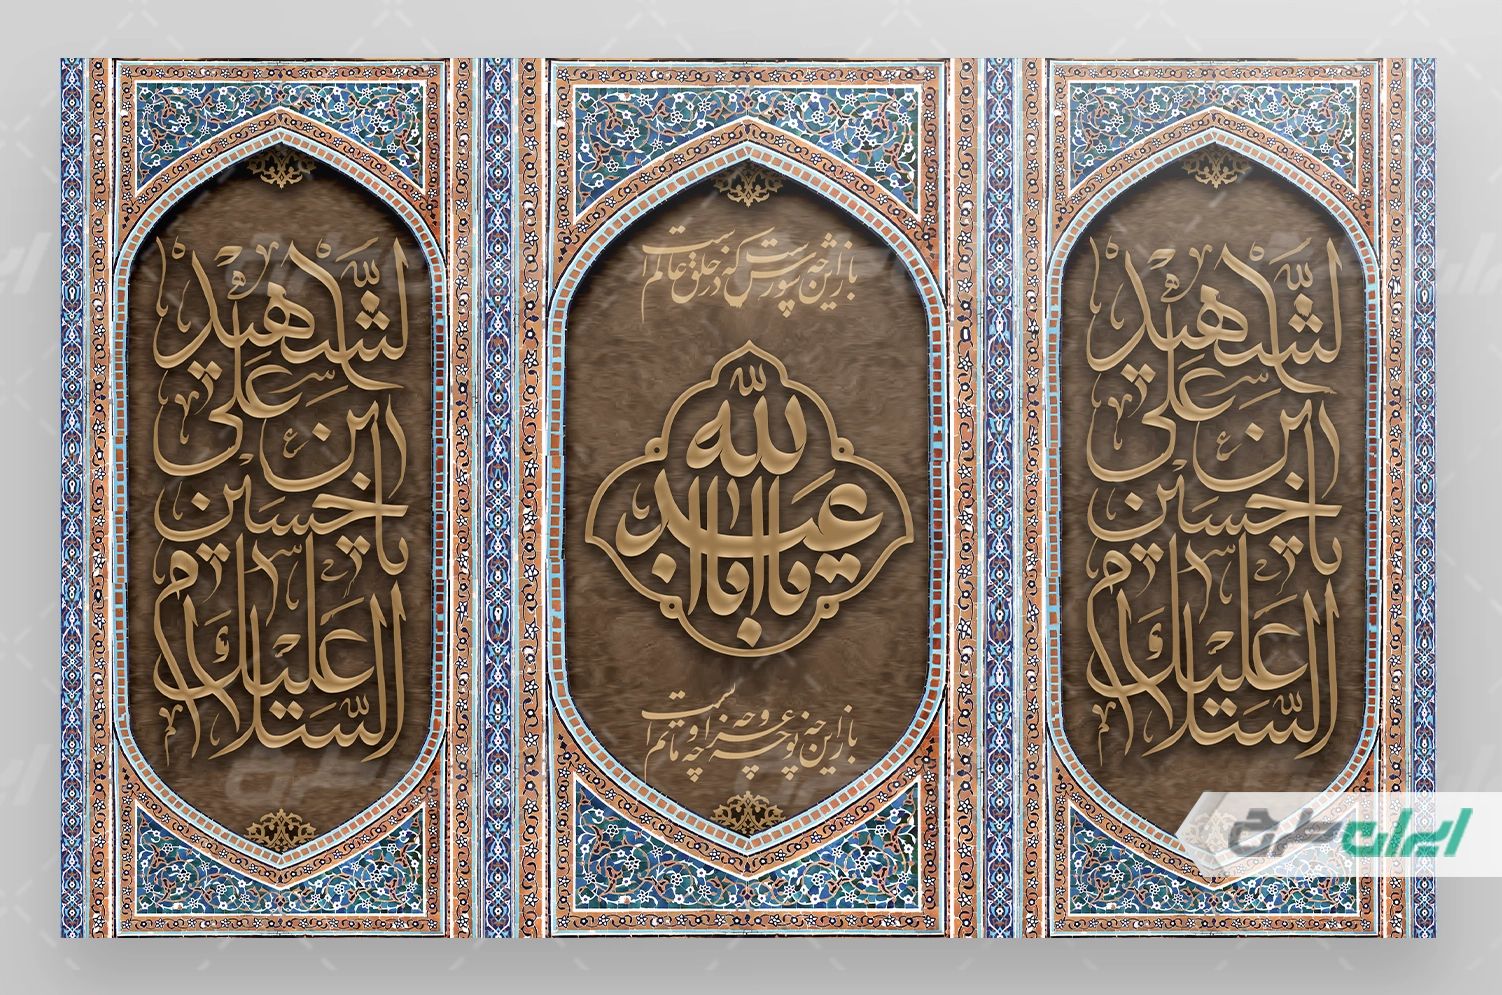 السلام علیک یا حسین ابن علی الشهید
باز این چه شورش است که در خلق عالم است
یا اباعبدالله
باز این چه نوحه و چه عزا و چه ماتم است
السلام علیک یا حسین ابن علی الشهید
ایران طرح